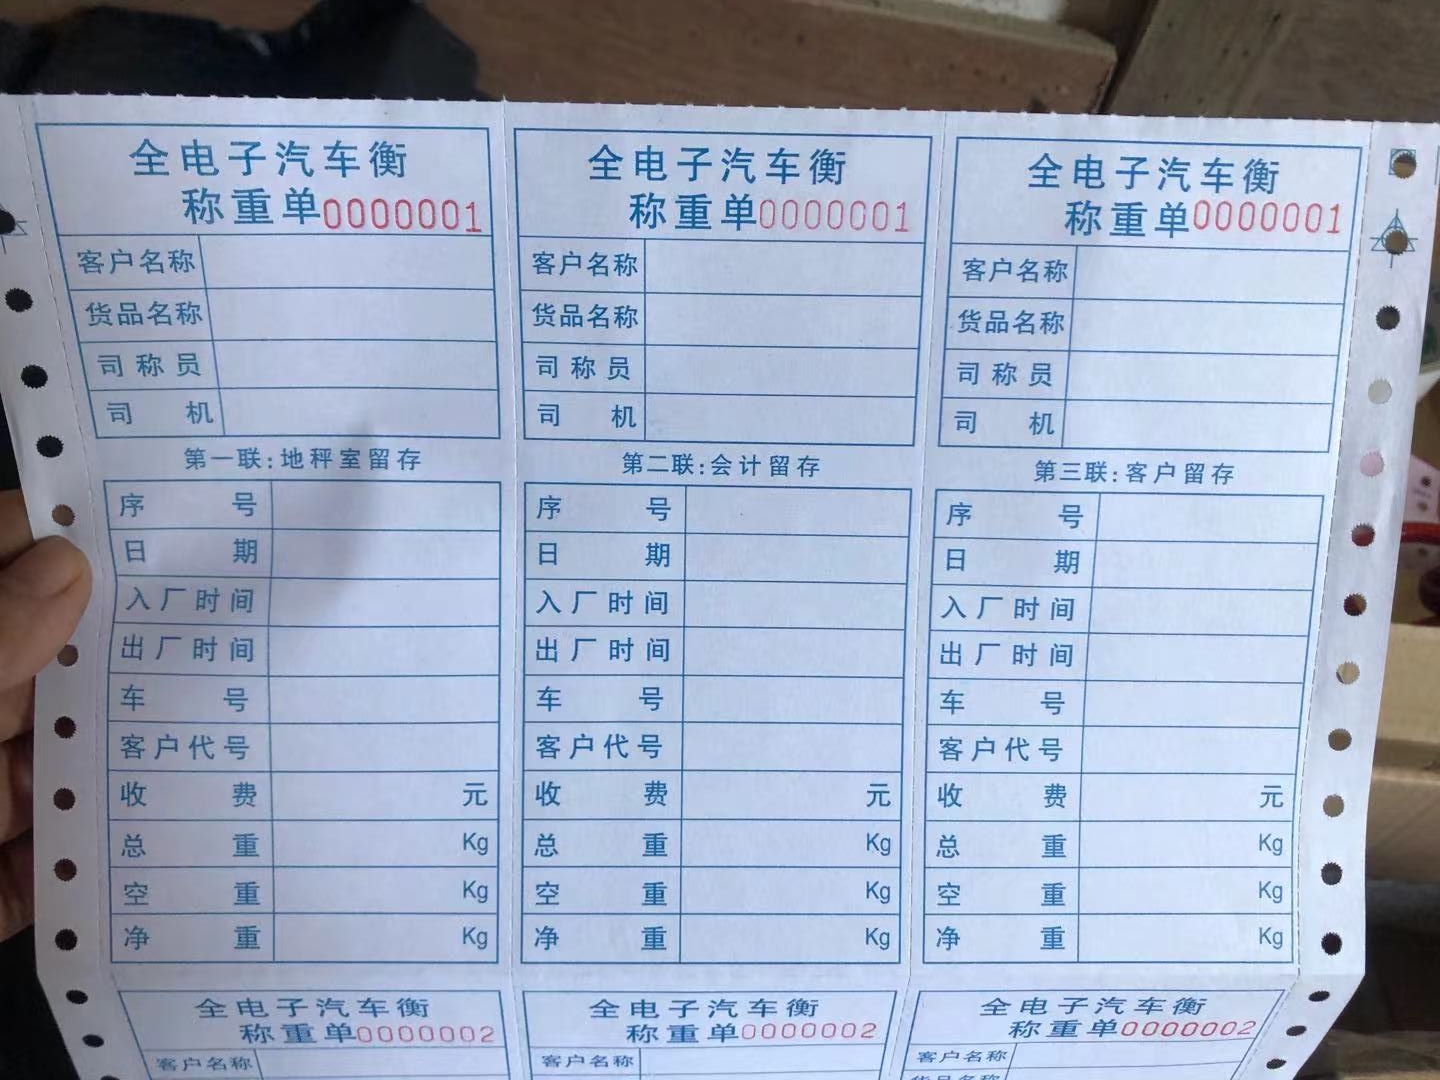 全电子汽车衡
称重单0000001
客户名称
货品名称
司称员
司机
第一联:地秤室留存
序号
日期
入厂时间
出厂时间
车号
客户代号
收费 元
总重 Kg
空重 Kg
净重 Kg
全电子汽车衡
称重单0000002
客户名称
全电子汽车衡
称重单0000001
客户名称
货品名称
司称员
司机
第二联:会计留存
序号
日期
入厂时间
出厂时间
车号
客户代号
收费 元
总重 Kg
空重 Kg
净重 Kg
全电子汽车衡
称重单0000002
客户名称
全电子汽车衡
称重单0000001
客户名称
货品名称
司称员
司机
第三联:客户留存
序号
日期
入厂时间
出厂时间
车号
客户代号
收费 元
总重 Kg
空重 Kg
净重 Kg
全电子汽车衡
称重单0000002
客户名称